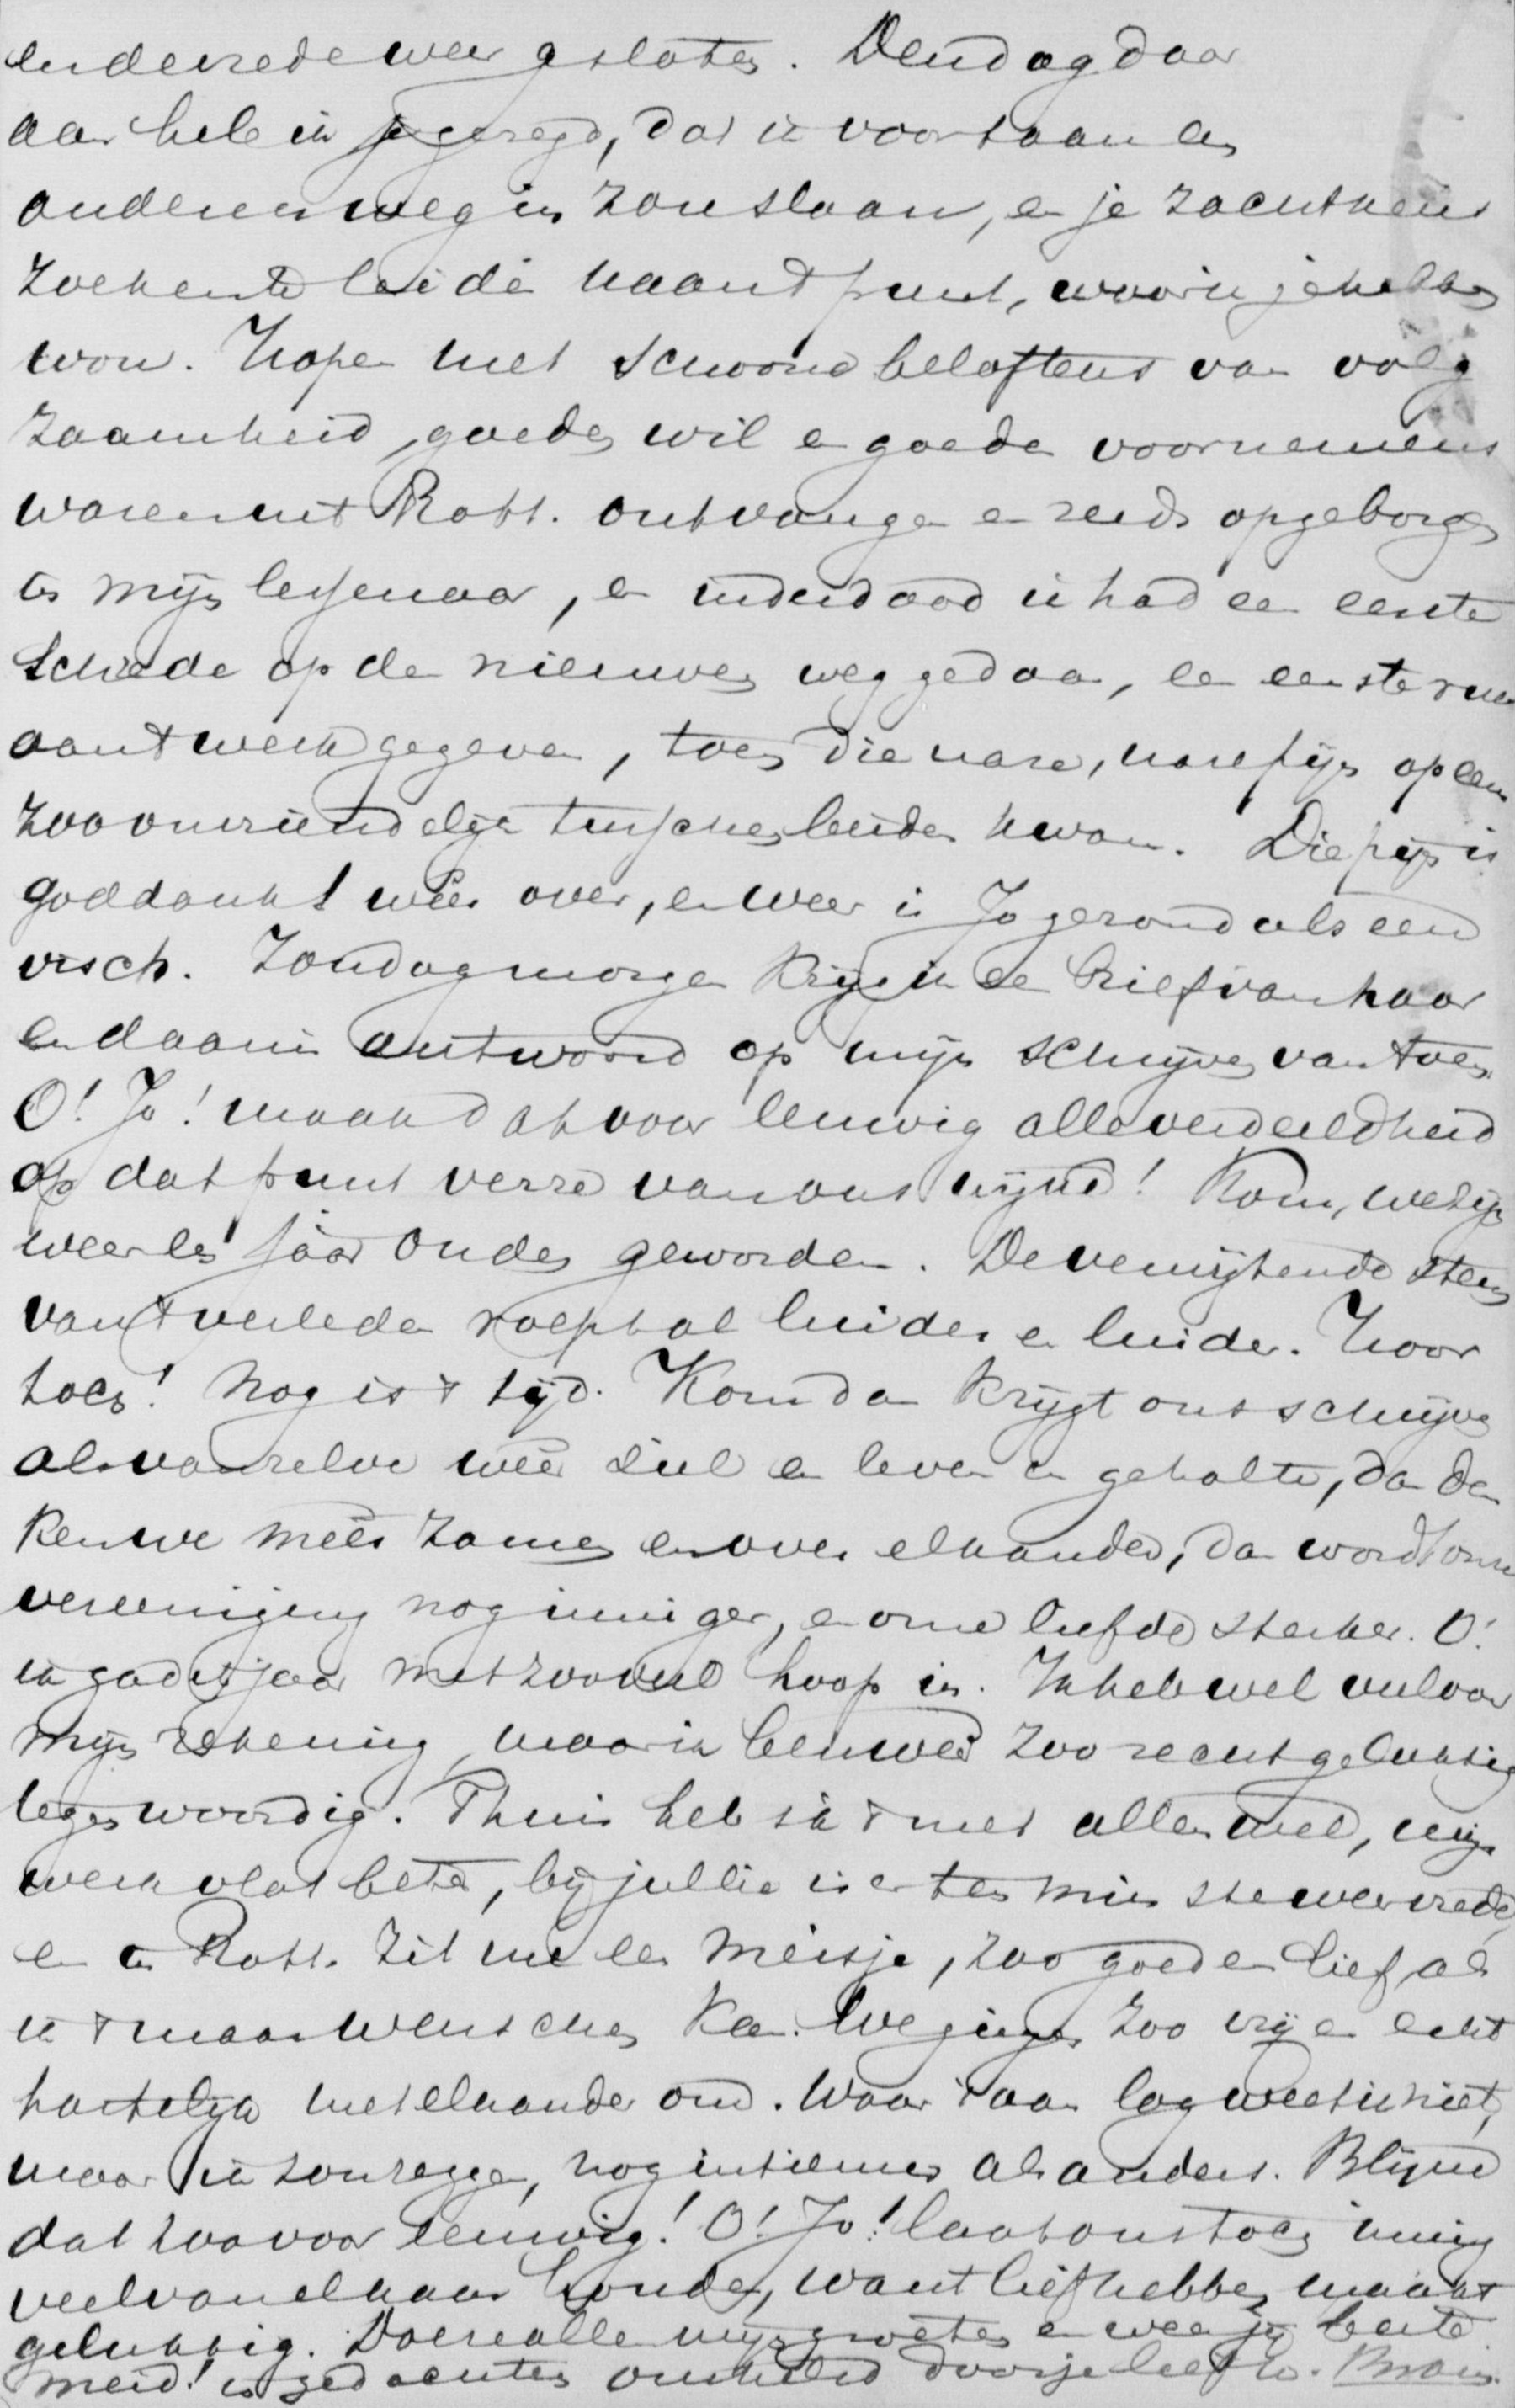 en de vrede weer gesloten. Den dag daar
aan heb ik je gezegd, dat ik voortaan een
anderen weg in zou slaan, en je zachtkens
zoeken te leiden naar 't punt, waar ik je hebben
wou. Hopen met schoone beloftens van volg
zaamheid, goeden wil en goede voornemens
waren uit Rott. ontvangen en reeds opgeborgen
in mijn lessenaar, en inderdaad ik had een eerste
schrede op den nieuwen weg gedaan, en een
aan 't werk gegeven, toen die nare, nare pijn opeens
zoo onvriendelijk tusschenbeiden kwam. Die pijn is
goddank! weer over, en weer is Jo gezond als een
visch. Zondagmorgen krijg ik een brief van haar
en daarin antwoord op mijn schrijven van toen.
O! Jo! maak dat voor eeuwig alle verdeeldheid
op dat punt verre van ons blijve! Kom, we zijn
weer een jaar ouder geworden. De stem
van 't verleden roept al luider en luider. Hoor
toch! Nog is 't tijd. Kom dan krijgt ons schrijven
als vanzelve weer ziel en leven en gehalte, dan den
ken we meer zamen en over elkander, dan wordt onze
vereeniging nog inniger, en onze liefde sterker. O!
ik ga dit jaar met zooveel hoop in. Ik heb wel veel voor
mijn rekening, maar ik ben weer zoo recht gelukkig
tegenwoordig. Thuis heb ik 't met allen wel, mijn
werk vlot beter, bij jullie is er ten minste weer vrede,
en in Rott. zit me een meisje, zoo goed en lief als
ik 't maar wenschen kan. We gingen zoo vrij en echt
hartelijk met elkander om. Waar 't aan lag weet ik niet,
maar ik zou zeggen, nog intiemer als anders. Blijve
dat zoo voor eeuwig! O! Jo! laat ons toch innig
veel van elkaar houden, want liefhebben maakt
gelukkig. Doe ze allen mijn groeten en wees jij beste
meid! in gedachten omhelsd door je liefh. Bram.